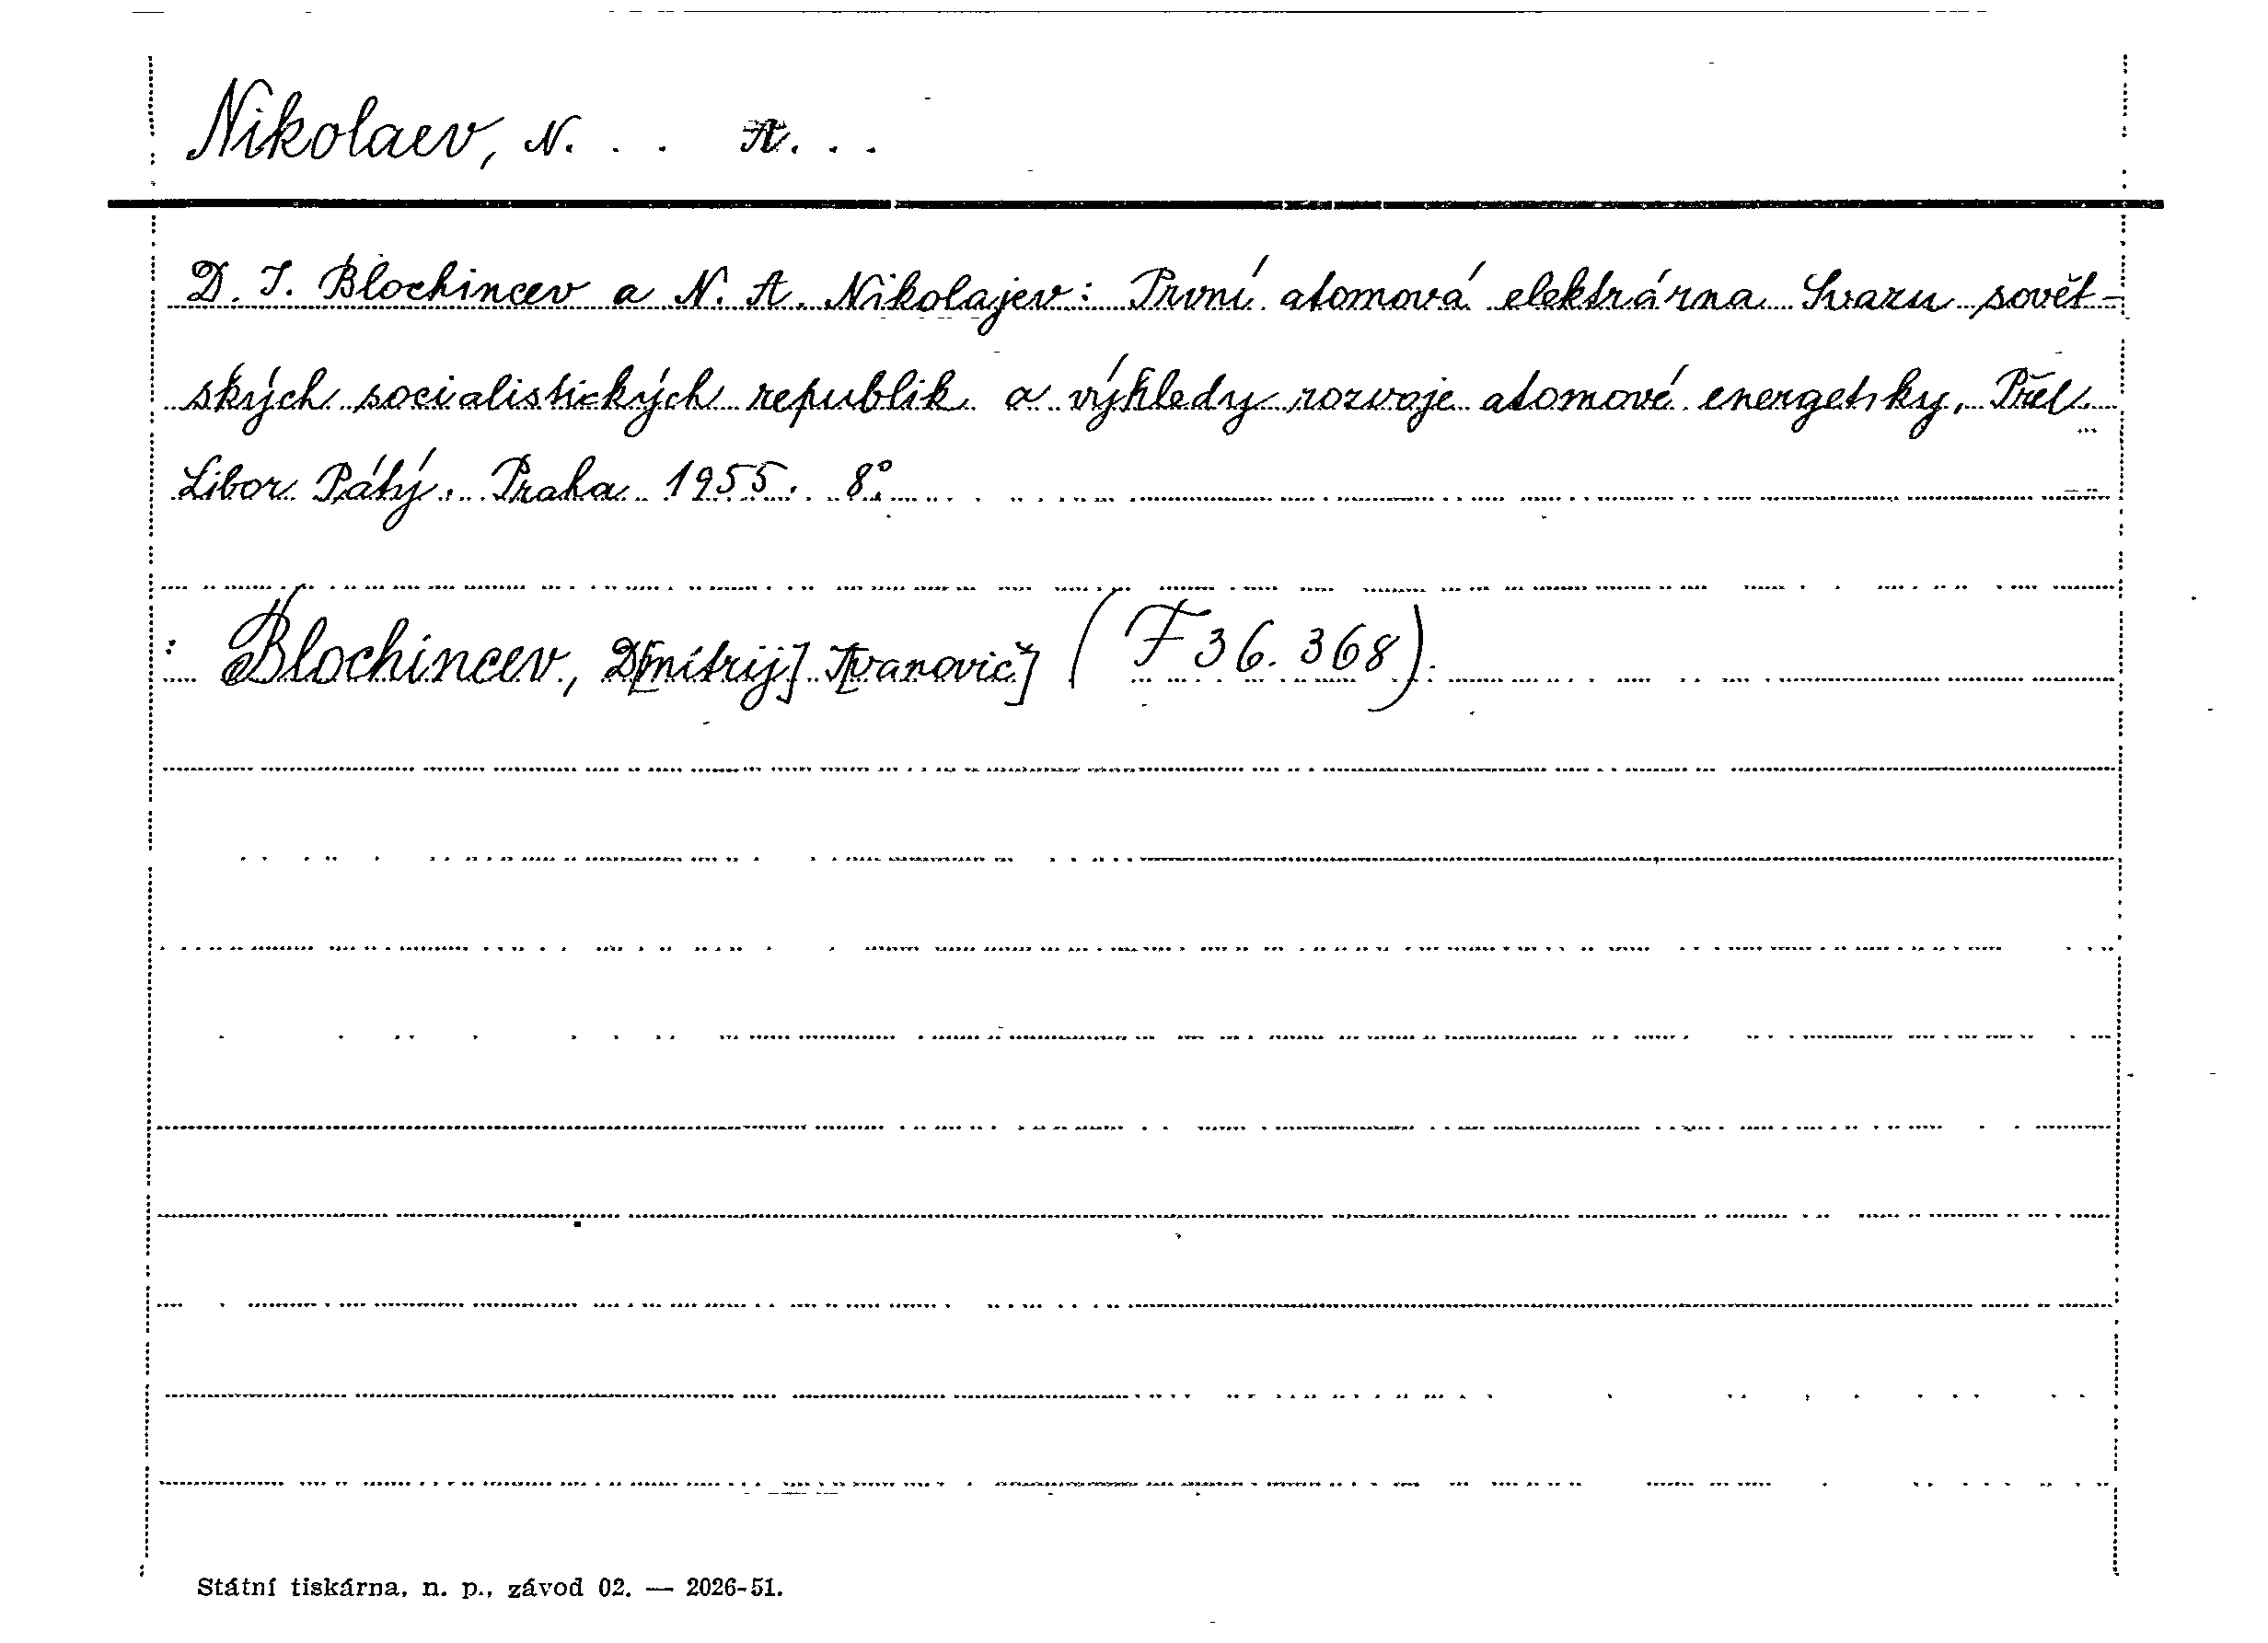 Nikolaev, N. . . A. . .
D. I. Blochincev a N. A. Nikolajev: První atomová elektrárna Svazu sovět-
ských socialistických republik a výhledy rozvoje atomové energetiky. Přel.
Libor Pátý. Praha 1955. 8°.
: Blochincev, D[mitrij] I[vanovič] (F 36.368).
Státní tiskárna, n. p., závod 02. — 2026-51.